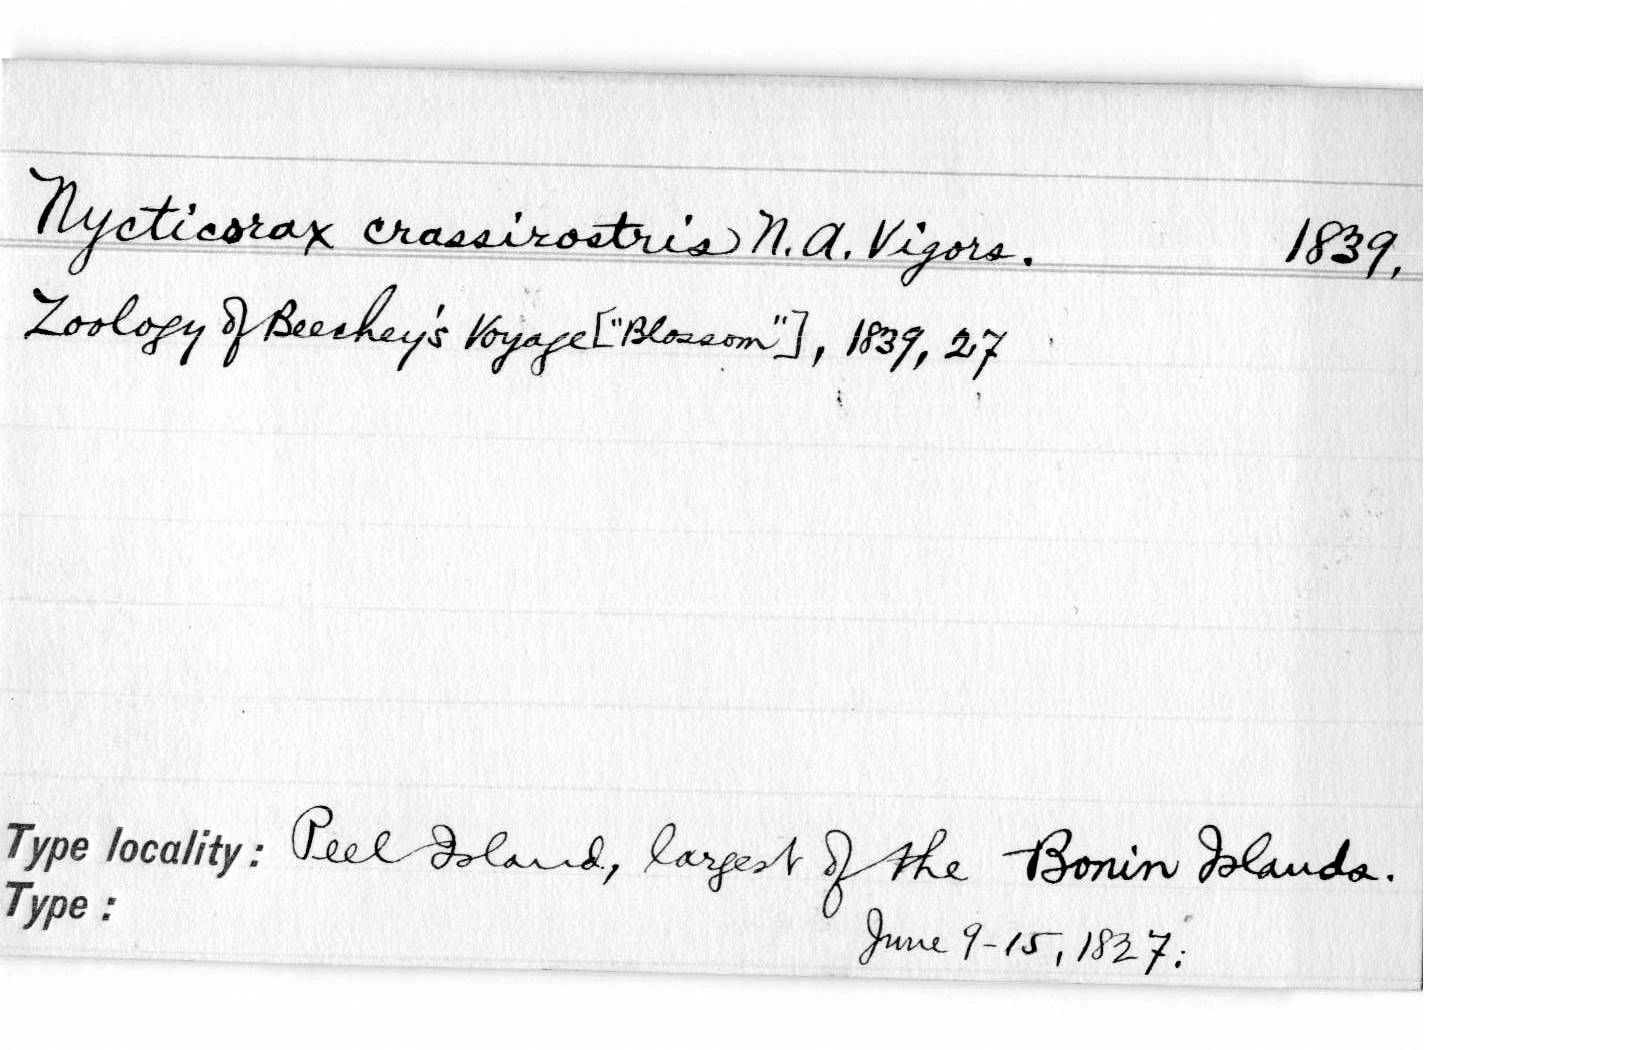 Nycticorax crassirostris N. A. Vigors. 1839.
Zoology of Beechey's Voyage ["Blossom"], 1839, 27
Type locality: Peel Island, largest of the Bonin Islands.
Type:
June 9-15, 1827.